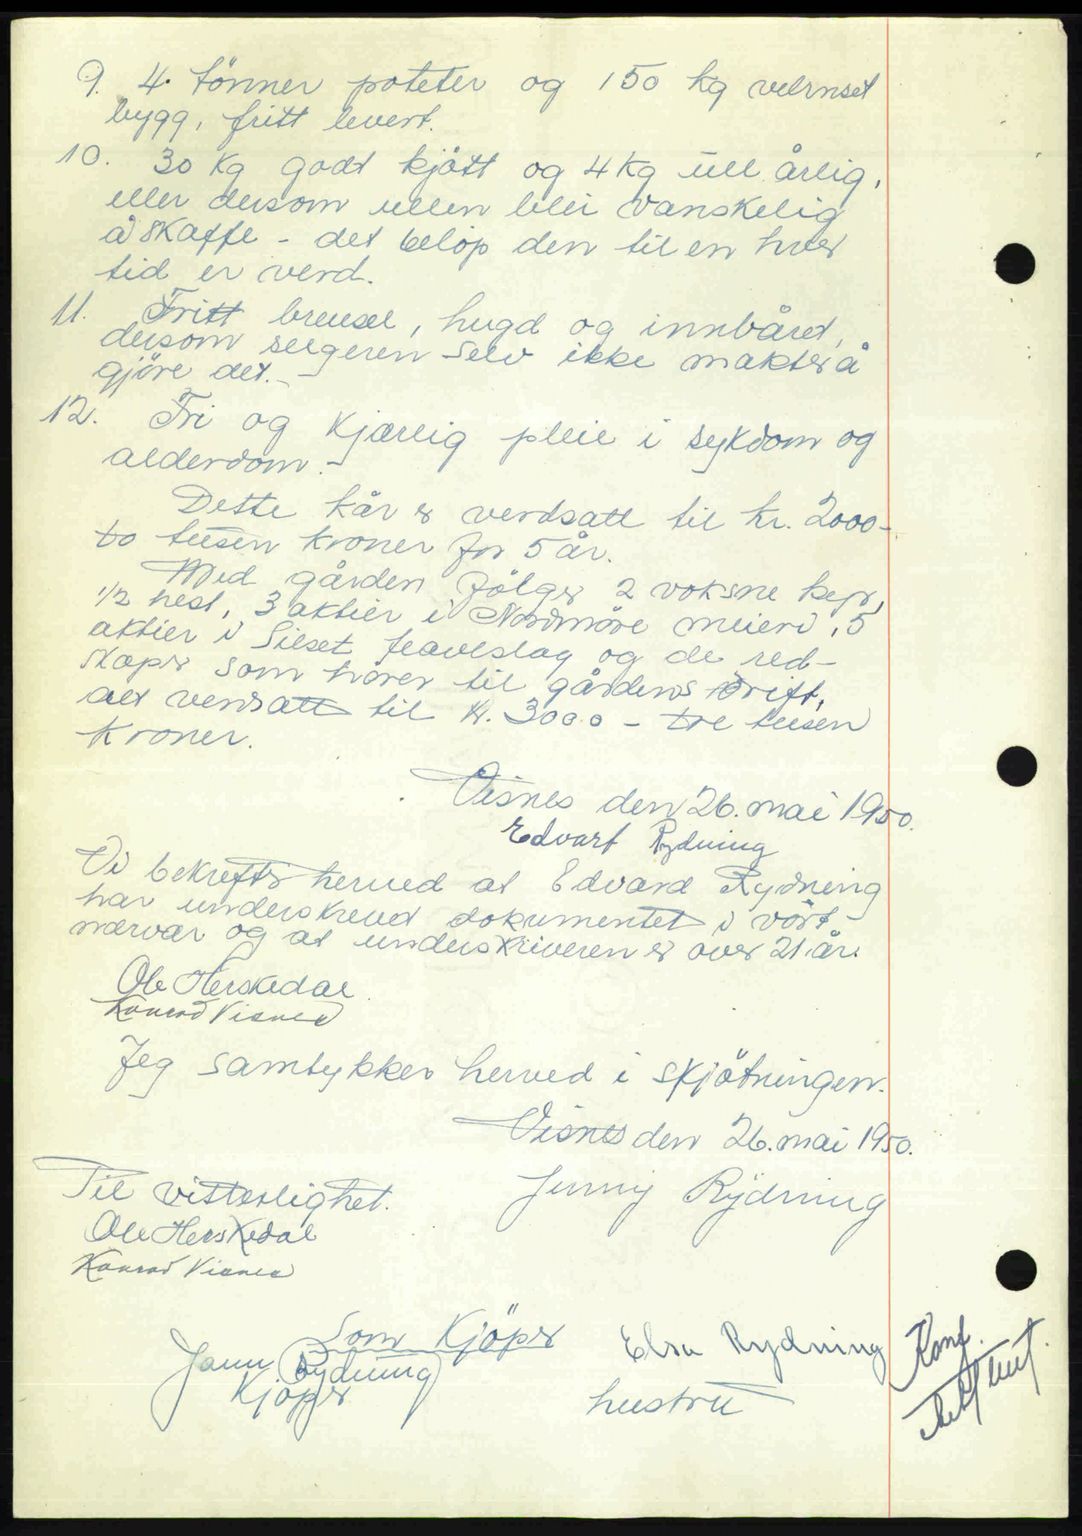 9. 4. tönner poteter og 150 kg velrnset
bygg, fritt levert.
10. 30 kg godt kjött og 4 kg ull årlig,
eller dersom ullen blei vanskelig
å skaffe - det belöp den til en hver
tid er verd.
11. Fritt brensel, hugd og innbåret,
dersom selgeren selv ikke makter å
gjöre det.-
12. Fri og kjærlig pleie i sykdom og
alderdom.-
Dette kår er verdsatt til kr. 2000-
to tusen kroner for 5 år.
Med gården fölger 2 voksne kyr,
1/2 hest, 3 aktier i Nordmöre meieri, 5
aktier i Silset feavlslag og de red-
skaper som hörer til gårdens drift,
alt verdsatt til kr. 3000 - tre tusen
kroner.
Visnes den 26. mai 1950.
Edvart Rydning
Vi bekrefter herved at Edvard Rydning
har underskrevd dokumentet i vårt
nærvær og at underskriveren er over 21 år.
Ole Herskedal
Konrad Visnes
Jeg samtykker herved i skjötningen.
Visnes den 26. mai 1950.
Jenny Rydning
Til vitterlighet.
Ole Herskedal
Konrad Visnes
Som Kjöper
Elsa Rydning
Rydning
Kjöper
hustru
Konf.